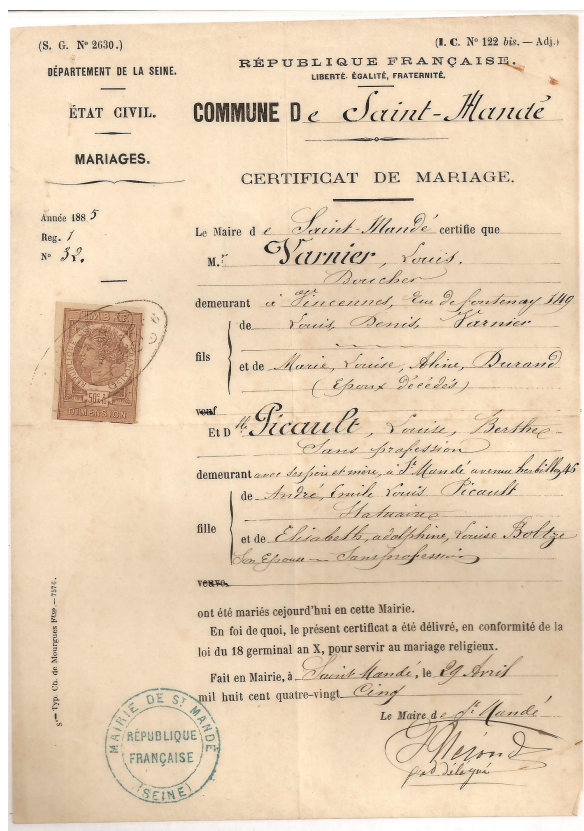 (S. G. N° 2630.)
(I. C. N° 122 bis. — Adj.)
DÉPARTEMENT DE LA SEINE.
ÉTAT CIVIL.
MARIAGES.
RÉPUBLIQUE FRANÇAISE.
LIBERTÉ, ÉGALITÉ, FRATERNITÉ.
COMMUNE De Saint-Mandé
CERTIFICAT DE MARIAGE.
Année 1885
Reg. 1
N° 32.
Le Maire de Saint-Mandé certifie que
M.r Varnier, Louis.
Boucher
demeurant à Vincennes, Rue de fontenay 149
fils
de Louis, Denis, Varnier
et de Marie, Louise, Aline, Durand
(Epoux décédés)
veuf
Et Dlle Picault, Louise, Berthe
Sans profession
demeurant avec ses père et mère, à St Mandé avenue herbillon 45
fille
de André, Emile Louis Picault
Statuaire
et de Elisabeth, adolphine, Louise Boltze
Son Epouse — Sans profession
veuve.
ont été mariés cejourd'hui en cette Mairie.
En foi de quoi, le présent certificat a été délivré, en conformité de la
loi du 18 germinal an X, pour servir au mariage religieux.
Fait en Mairie, à Saint Mandé, le 29 Avril
mil huit cent quatre-vingt Cinq
Le Maire de St Mandé
délégué
TIMBRE
50c
DIMENSION
MAIRIE DE ST MANDÉ
RÉPUBLIQUE
FRANÇAISE
(SEINE)
Sté Typ. Ch. de Mourgues Fres. — 7574.